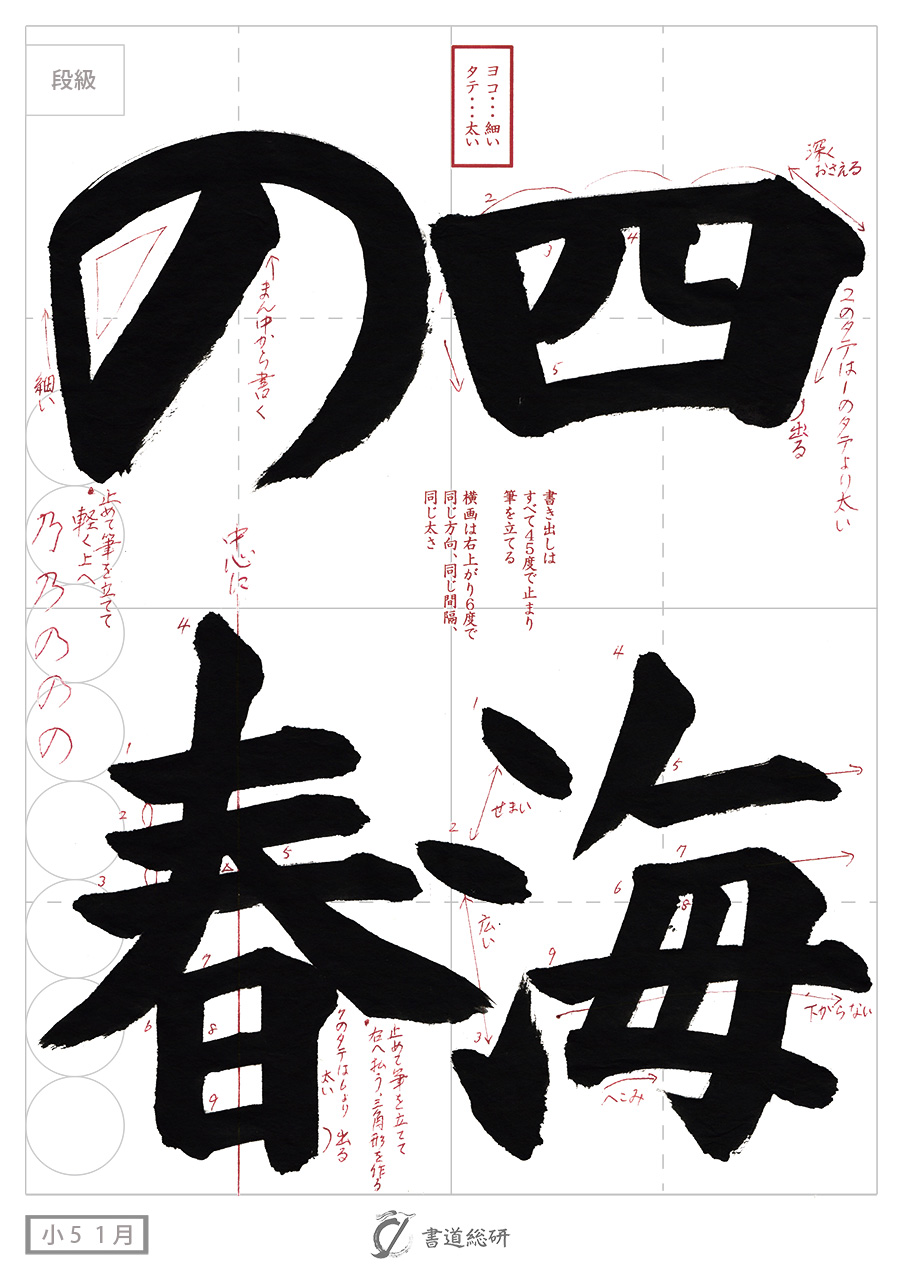 段級
ヨコ・・・細い
タテ・・・太い
四海
の春
深く
おさえる
2のタテは1のタテより太い
出る
まん中から書く
細い
止めて筆を立てて
軽く上へ
乃
乃
の
の
の
中心に
書き出しは
すべて45度で止まり
筆を立てる
横画は右上がり6度で
同じ方向、同じ間隔、
同じ太さ
せまい
広い
下がらない
へこみ
止めて筆を立てて
右へ払う、三角形を作る
太い
出る
1
2
3
4
5
1
2
3
4
5
6
7
8
9
1
2
3
4
5
6
7
8
9
小5 1月
書道総研